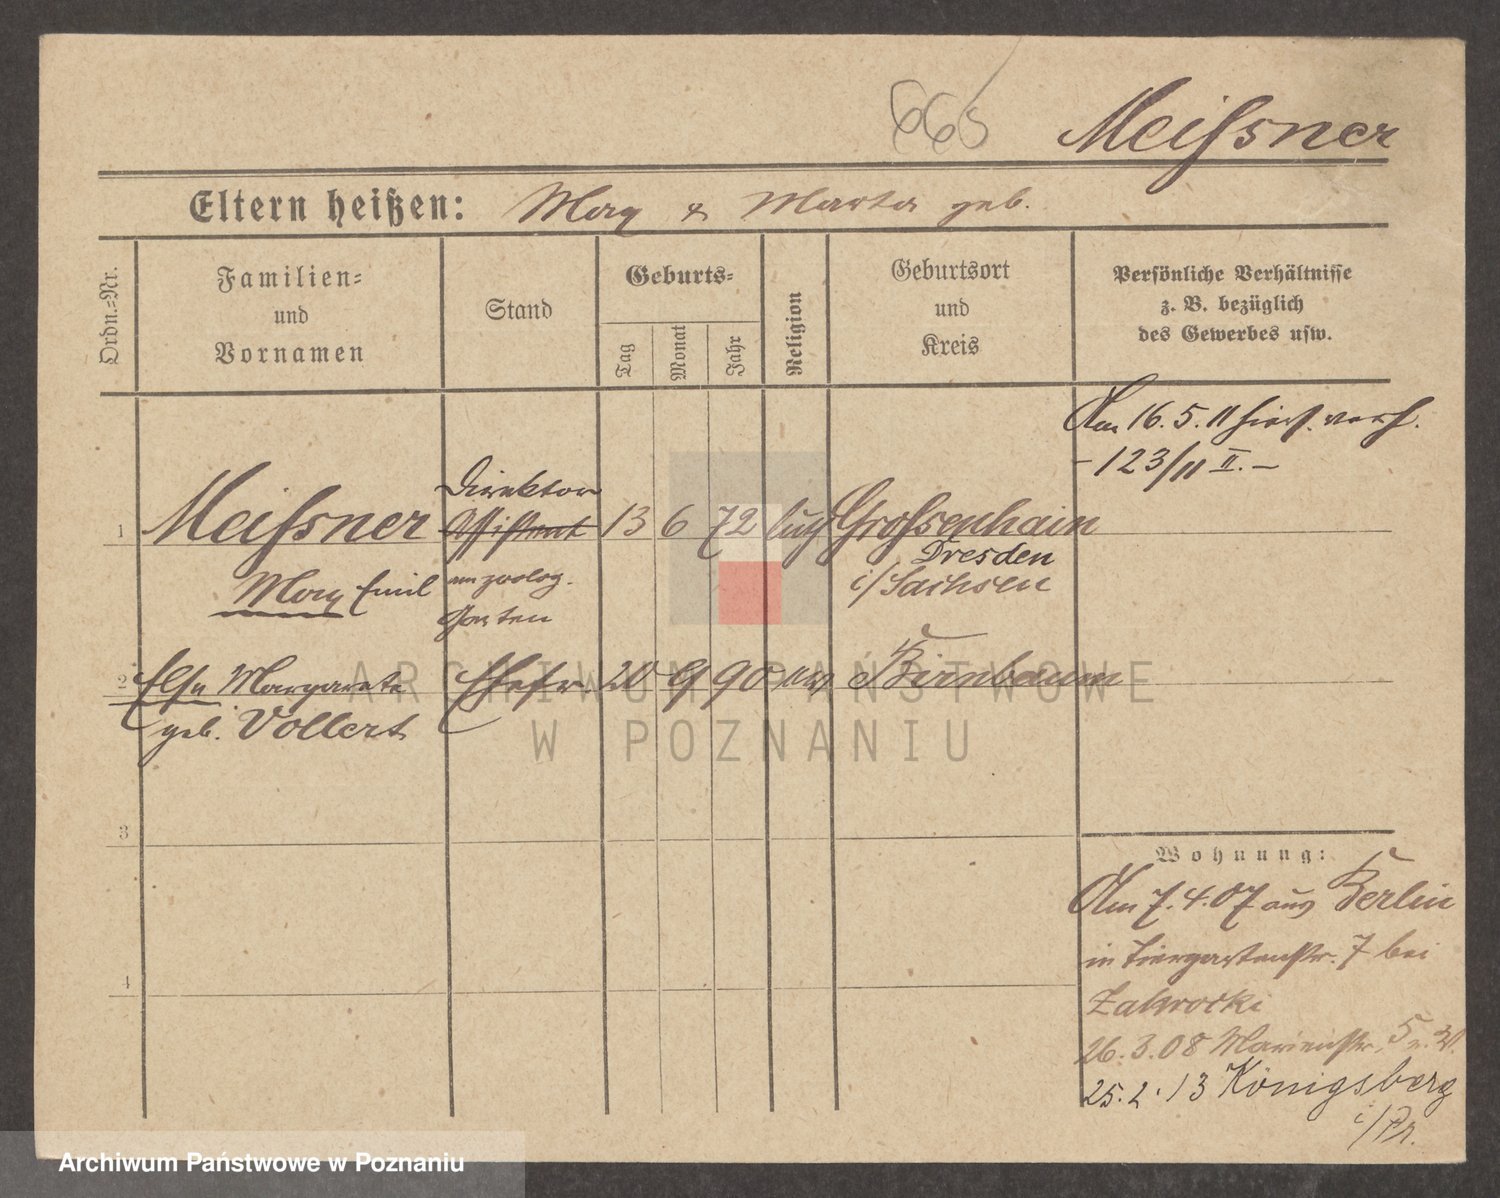 665
Meißner
Eltern heißen: Max & Marta geb.
Ordn.=Nr.
Familien=
und
Vornamen
Stand
Geburts=
Tag
Monat
Jahr
Religion
Geburtsort
und
Kreis
Persönliche Verhältnisse
z. B. bezüglich
des Gewerbes usw.
Am 16. 5. 11 hiers. verh.
- 123/11 II. -
1 Meißner Direktor Assistent 13 6 72 luth Großenhain
Dresden
Max Emil am zoolog. i/Sachsen
Garten
2 Else Margarete Ehefr. 20 9 90 Birnbaum
geb. Vollert
3
4
Wohnung:
Am 7. 4. 07 aus Berlin
in Tiergartenstr. 7 bei
Zakrocki
26. 3. 08 Marienstr. 5
25. 2. 13 Königsberg
i/Pr.
ARCHIWUM PAŃSTWOWE
W POZNANIU
Archiwum Państwowe w Poznaniu